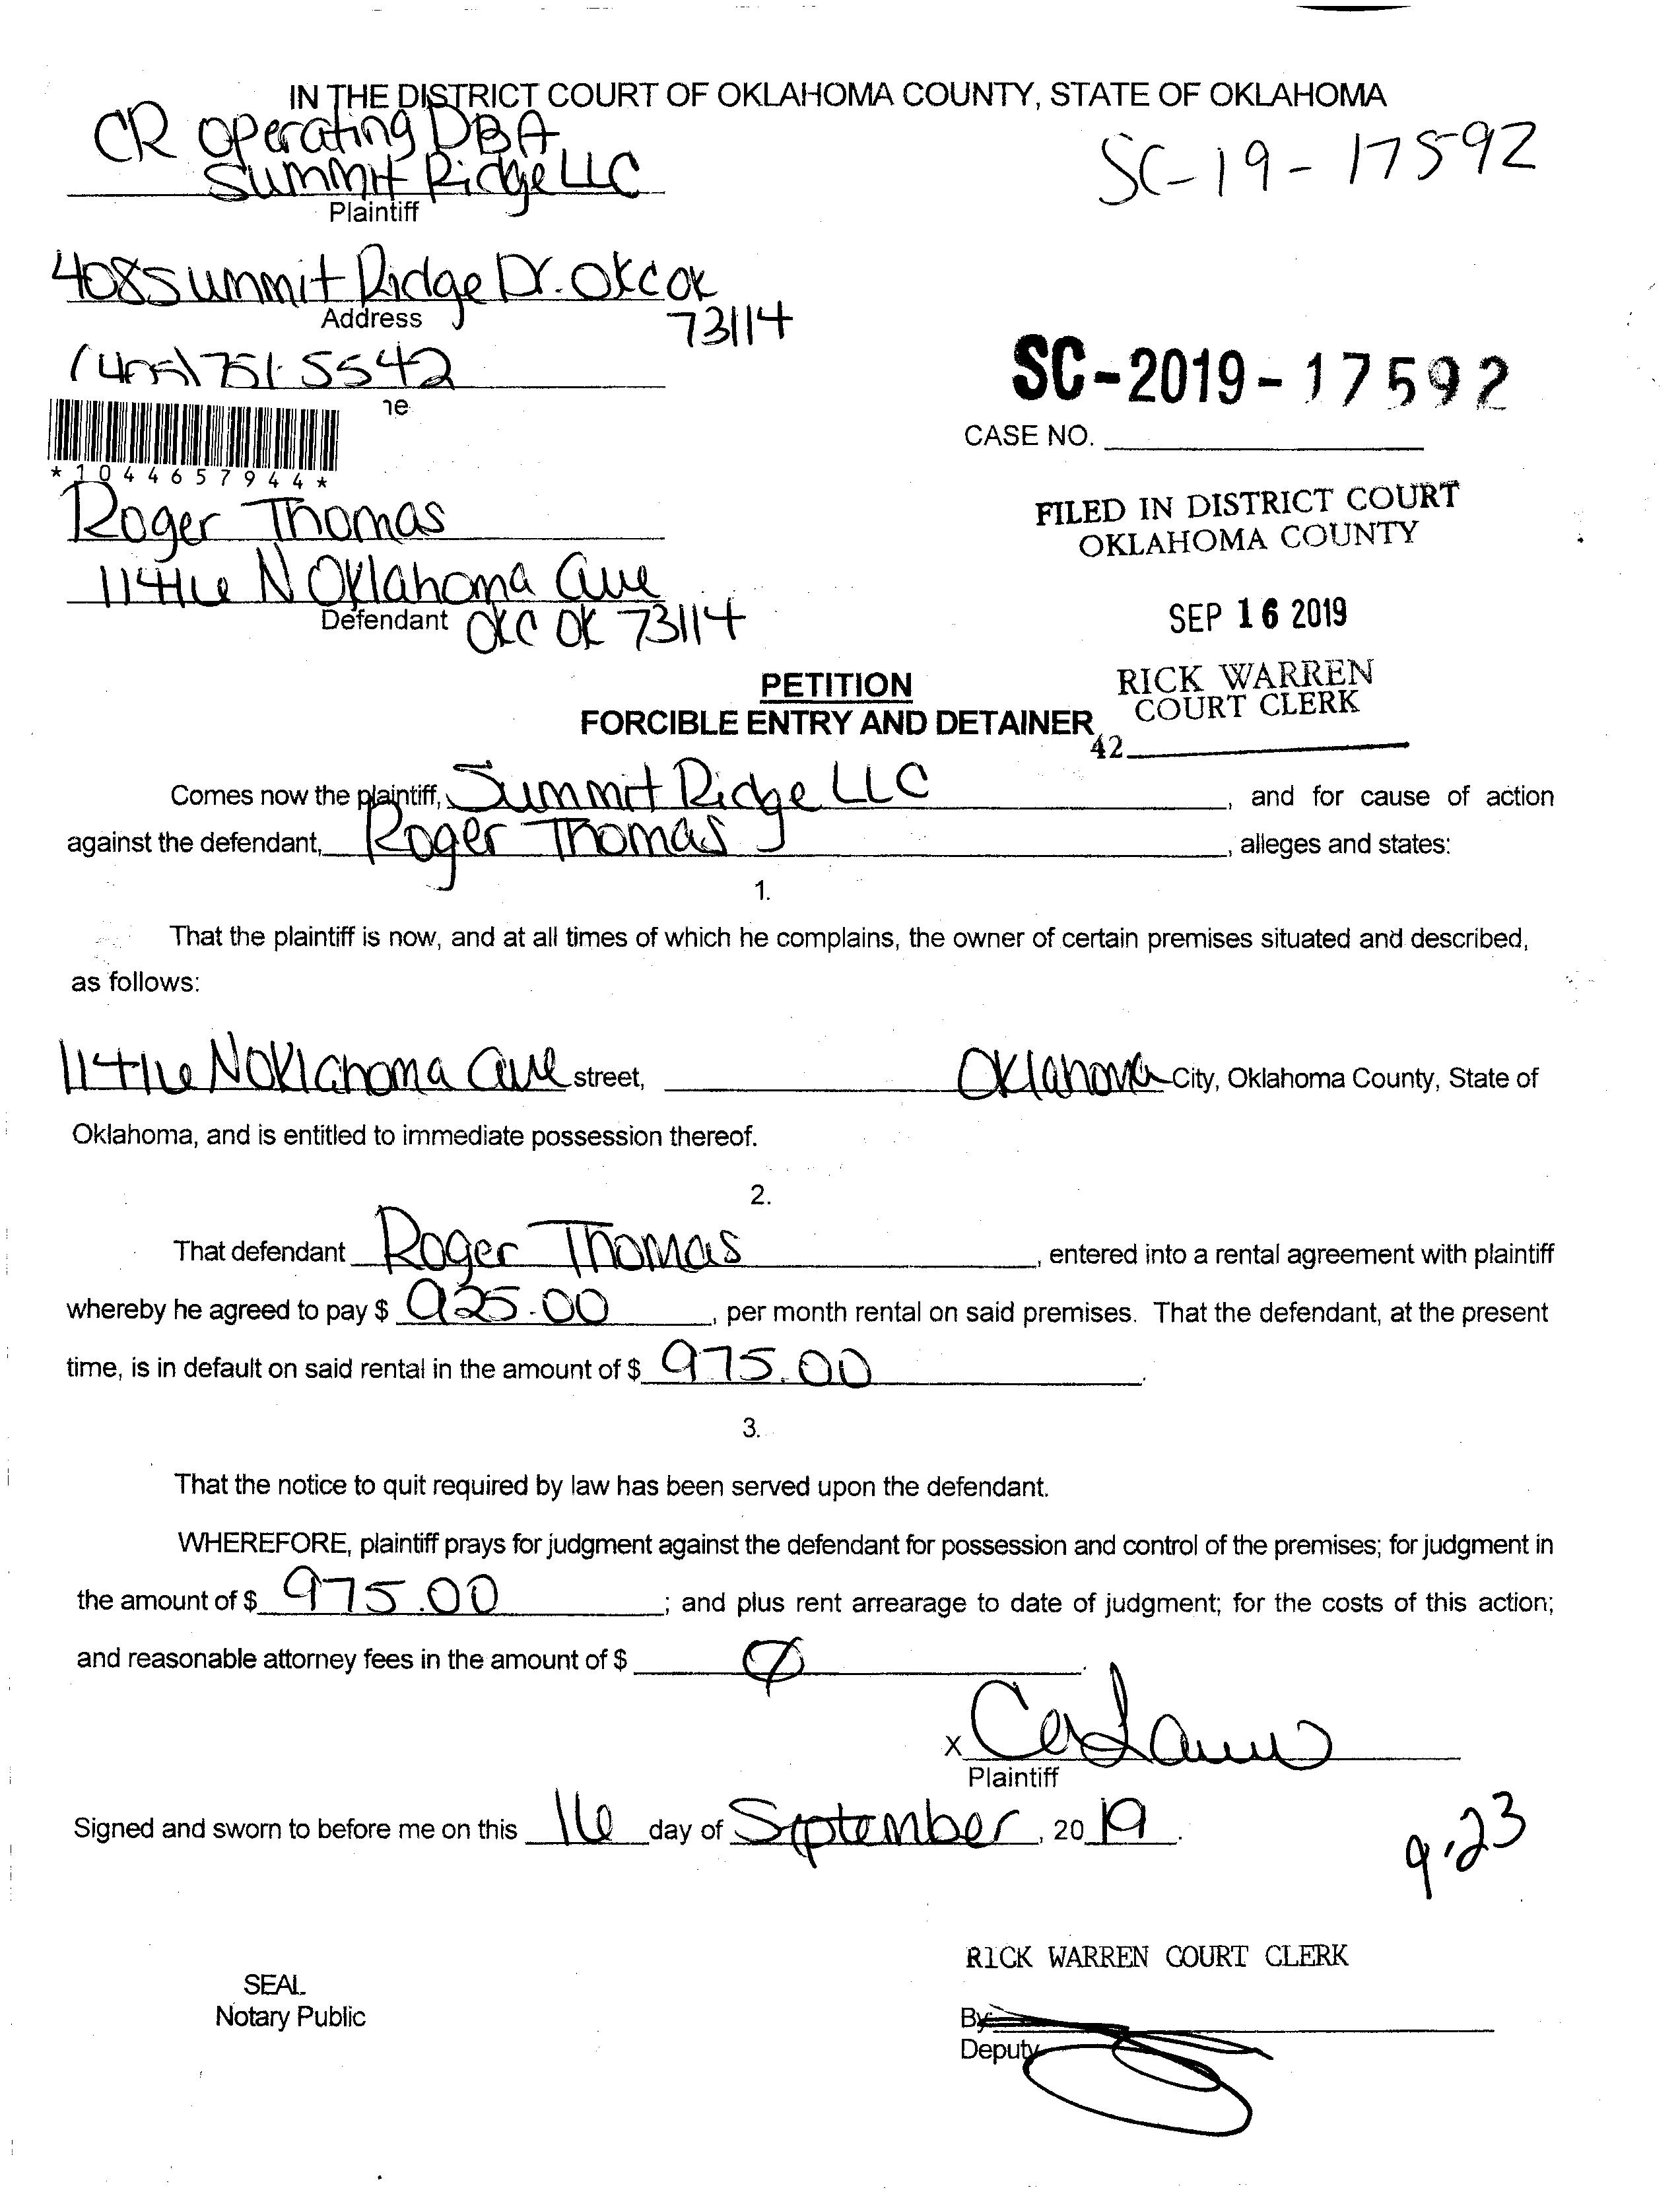 IN THE DISTRICT COURT OF OKLAHOMA COUNTY, STATE OF OKLAHOMA
CR Operating DBA
Summit Ridge LLC
SC-19-17592
Plaintiff
408 Summit Ridge Dr. OKC OK
Address
73114
(405) 751-5542
ne
SC-2019-17592
CASE NO.
*1044657944*
Roger Thomas
FILED IN DISTRICT COURT
OKLAHOMA COUNTY
11416 N Oklahoma Ave
Defendant OKC OK 73114
SEP 16 2019
PETITION
RICK WARREN
COURT CLERK
FORCIBLE ENTRY AND DETAINER
42
Comes now the plaintiff, Summit Ridge LLC, and for cause of action
against the defendant, Roger Thomas, alleges and states:
1.
That the plaintiff is now, and at all times of which he complains, the owner of certain premises situated and described,
as follows:
11416 N Oklahoma Ave street, Oklahoma City, Oklahoma County, State of
Oklahoma, and is entitled to immediate possession thereof.
2.
That defendant Roger Thomas, entered into a rental agreement with plaintiff
whereby he agreed to pay $ 925.00, per month rental on said premises. That the defendant, at the present
time, is in default on said rental in the amount of $ 975.00.
3.
That the notice to quit required by law has been served upon the defendant.
WHEREFORE, plaintiff prays for judgment against the defendant for possession and control of the premises; for judgment in
the amount of $ 975.00; and plus rent arrearage to date of judgment; for the costs of this action;
and reasonable attorney fees in the amount of $ 0.
X
Plaintiff
Signed and sworn to before me on this 16 day of September, 2019.
9.23
RICK WARREN COURT CLERK
SEAL
Notary Public
By
Deputy